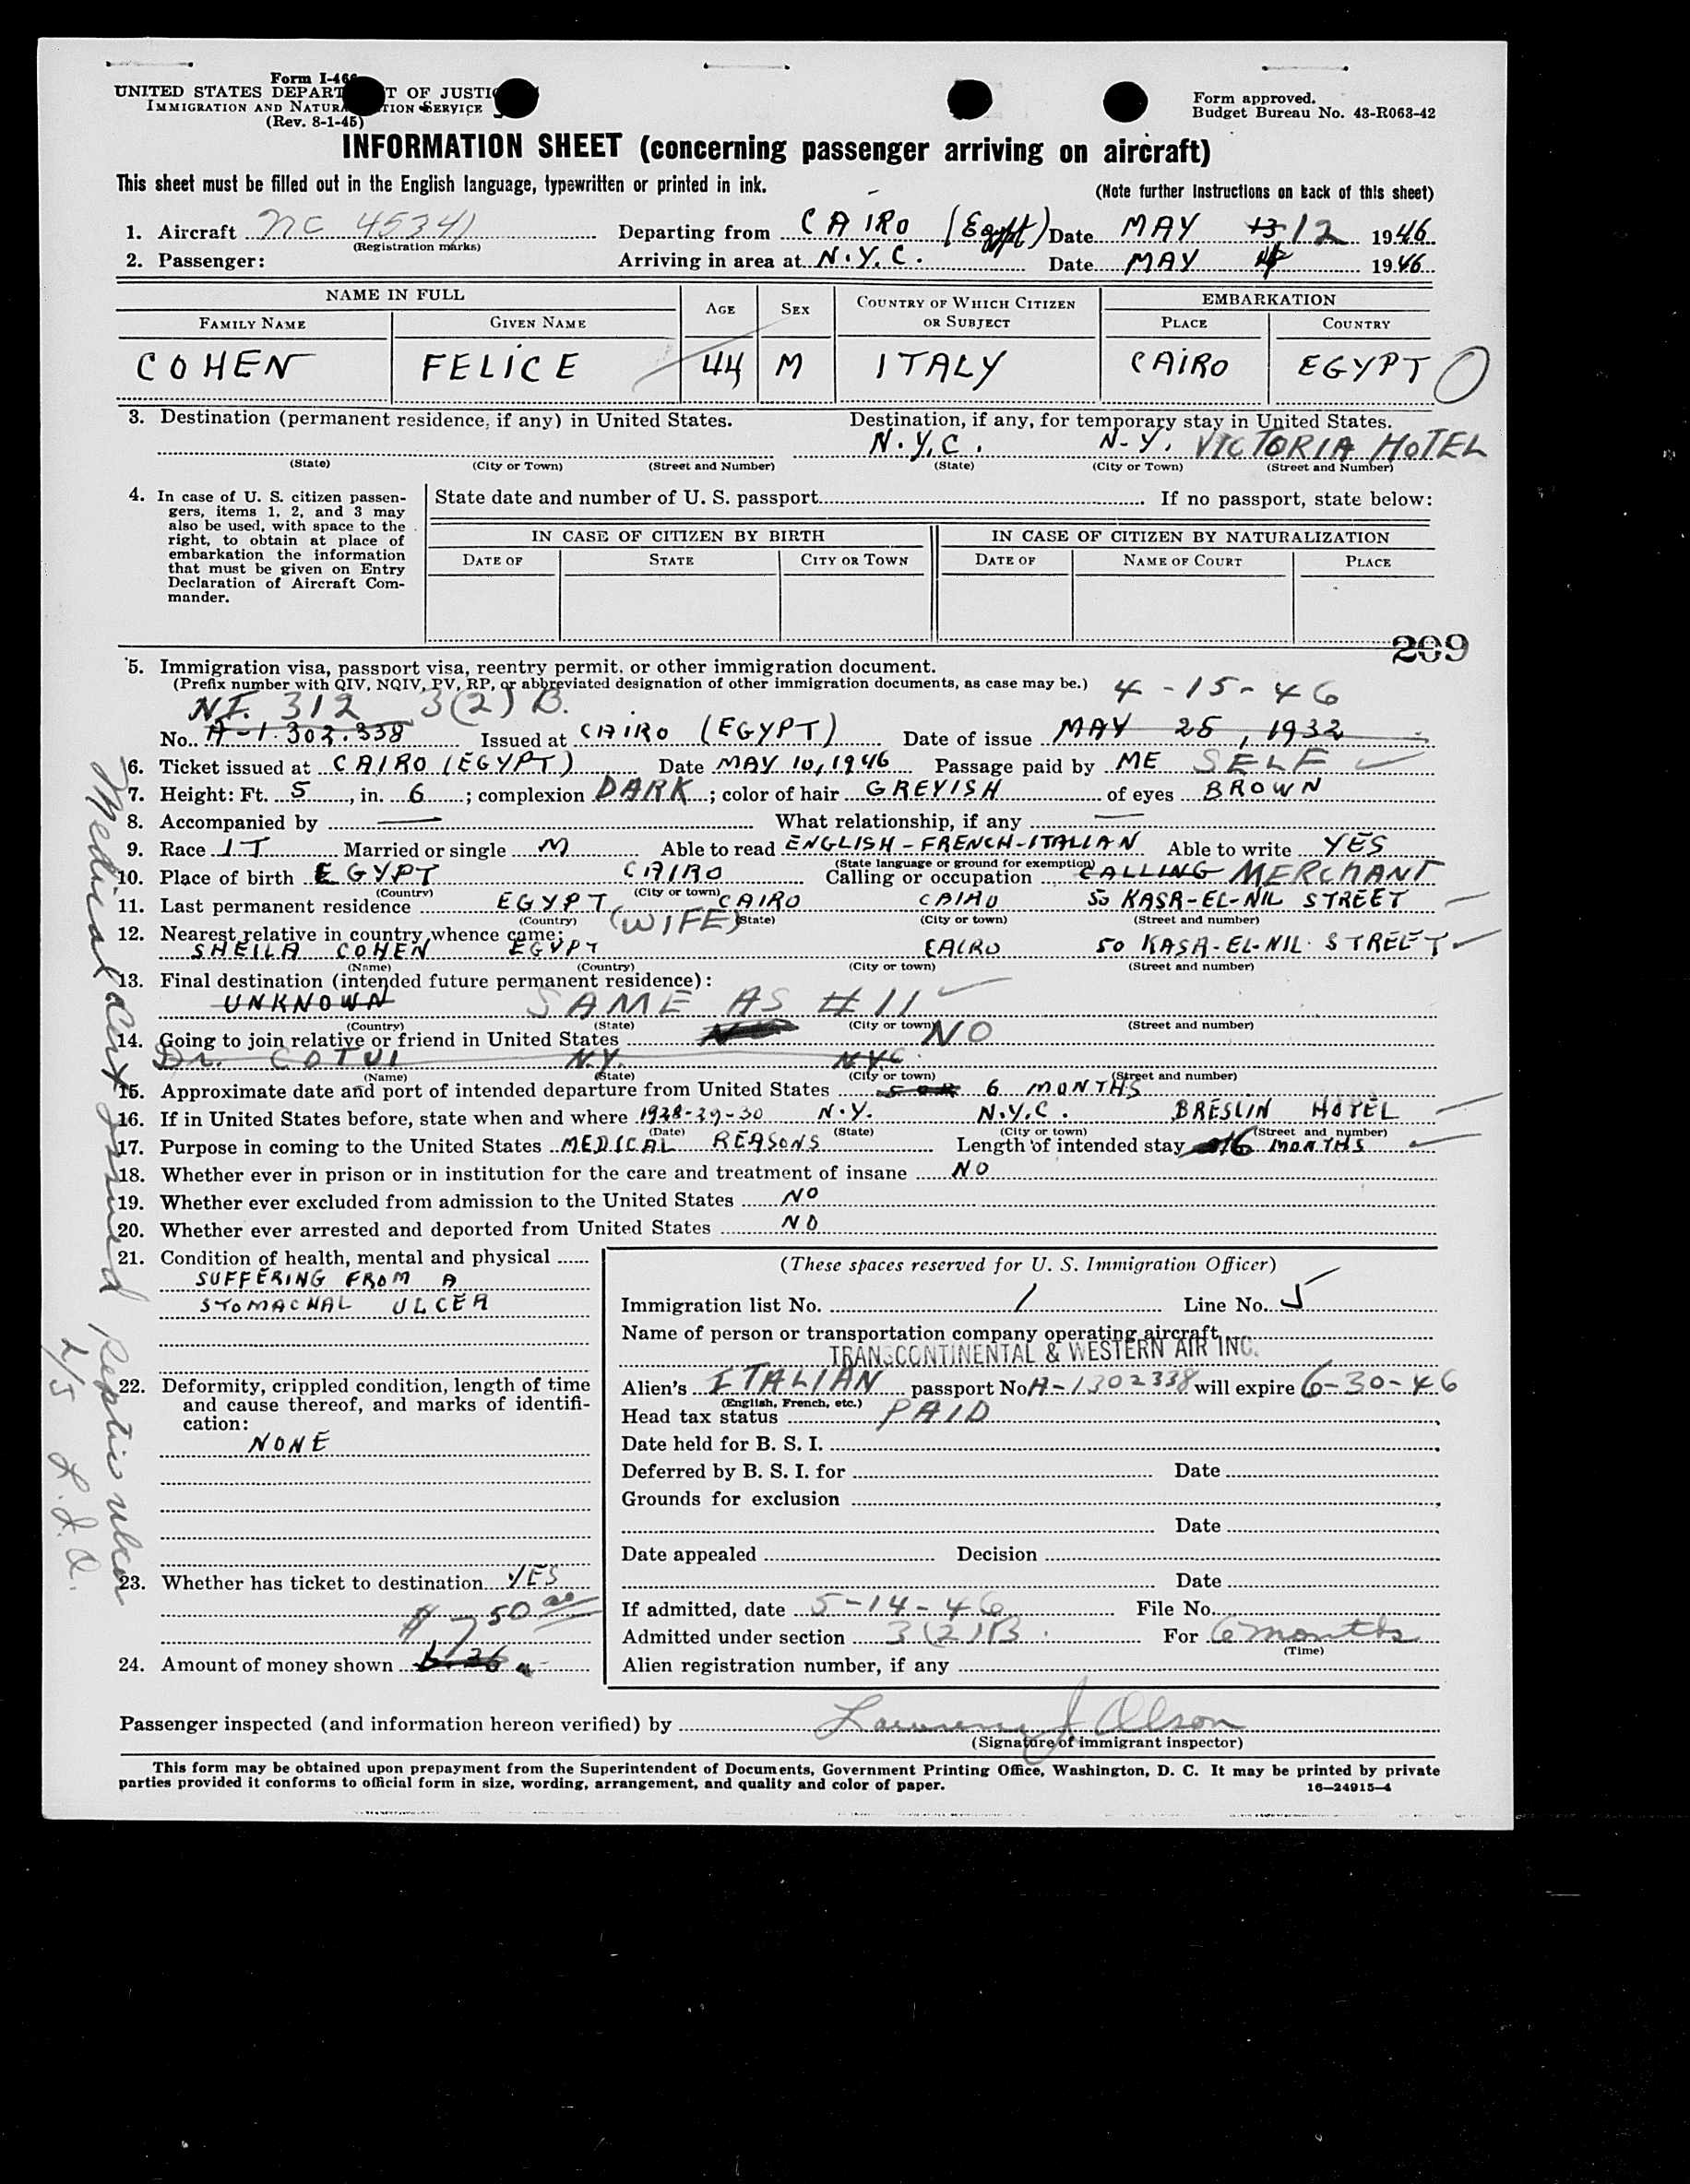 Form I-466
UNITED STATES DEPART T OF JUSTI
IMMIGRATION AND NATURA TION SERVICE
(Rev. 8-1-45)
Form approved.
Budget Bureau No. 43-R063-42
INFORMATION SHEET (concerning passenger arriving on aircraft)
This sheet must be filled out in the English language, typewritten or printed in ink.
(Note further instructions on back of this sheet)
1. Aircraft NC 45341 Departing from CAIRO (Egypt) Date MAY 13 12 1946
(Registration marks)
2. Passenger: Arriving in area at N.Y.C. Date MAY 1946
NAME IN FULL AGE SEX COUNTRY OF WHICH CITIZEN OR SUBJECT EMBARKATION
FAMILY NAME GIVEN NAME PLACE COUNTRY
COHEN FELICE 44 M ITALY CAIRO EGYPT
3. Destination (permanent residence, if any) in United States. Destination, if any, for temporary stay in United States.
N.Y.C. N-Y. VICTORIA HOTEL
(State) (City or Town) (Street and Number) (State) (City or Town) (Street and Number)
4. In case of U. S. citizen passen-
gers, items 1, 2, and 3 may
also be used, with space to the
right, to obtain at place of
embarkation the information
that must be given on Entry
Declaration of Aircraft Com-
mander.
State date and number of U. S. passport If no passport, state below:
IN CASE OF CITIZEN BY BIRTH IN CASE OF CITIZEN BY NATURALIZATION
DATE OF STATE CITY OR TOWN DATE OF NAME OF COURT PLACE
209
5. Immigration visa, passport visa, reentry permit, or other immigration document.
(Prefix number with QIV, NQIV, PV, RP, or abbreviated designation of other immigration documents, as case may be.)
N.I. 312 3(2) B. 4-15-46
No. A-1.302.338 Issued at CAIRO (EGYPT) Date of issue MAY 25, 1932
6. Ticket issued at CAIRO (EGYPT) Date MAY 10, 1946 Passage paid by ME SELF
7. Height: Ft. 5, in. 6; complexion DARK; color of hair GREYISH of eyes BROWN
8. Accompanied by — What relationship, if any —
9. Race IT Married or single M Able to read ENGLISH-FRENCH-ITALIAN Able to write YES
(State language or ground for exemption)
10. Place of birth EGYPT CAIRO Calling or occupation CALLING MERCHANT
(Country) (City or town)
11. Last permanent residence EGYPT CAIRO CAIRO 50 KASR-EL-NIL STREET
(Country) (State) (City or town) (Street and number)
12. Nearest relative in country whence came: (WIFE)
SHEILA COHEN EGYPT CAIRO 50 KASR-EL-NIL STREET
(Name) (Country) (City or town) (Street and number)
13. Final destination (intended future permanent residence):
UNKNOWN SAME AS # 11
(Country) (State) (City or town) (Street and number)
14. Going to join relative or friend in United States NO
Dr. COTUI N.Y. N.Y.C.
(Name) (State) (City or town) (Street and number)
15. Approximate date and port of intended departure from United States 6 MONTHS
16. If in United States before, state when and where 1928-29-30 N.Y. N.Y.C. BRESLIN HOTEL
(Date) (State) (City or town) (Street and number)
17. Purpose in coming to the United States MEDICAL REASONS Length of intended stay 6 MONTHS
18. Whether ever in prison or in institution for the care and treatment of insane NO
19. Whether ever excluded from admission to the United States NO
20. Whether ever arrested and deported from United States NO
21. Condition of health, mental and physical
SUFFERING FROM A
STOMACHAL ULCER
22. Deformity, crippled condition, length of time
and cause thereof, and marks of identifi-
cation:
NONE
23. Whether has ticket to destination YES
$ 750 00
24. Amount of money shown
(These spaces reserved for U. S. Immigration Officer)
Immigration list No. 1 Line No. 5
Name of person or transportation company operating aircraft
TRANSCONTINENTAL & WESTERN AIR INC.
Alien's ITALIAN passport No. A-1302338 will expire 6-30-46
(English, French, etc.)
Head tax status PAID
Date held for B. S. I.
Deferred by B. S. I. for Date
Grounds for exclusion
Date
Date appealed Decision
Date
If admitted, date 5-14-46 File No.
Admitted under section 3(2)B For 6 months
(Time)
Alien registration number, if any
Passenger inspected (and information hereon verified) by Lawrence J Olson
(Signature of immigrant inspector)
This form may be obtained upon prepayment from the Superintendent of Documents, Government Printing Office, Washington, D. C. It may be printed by private
parties provided it conforms to official form in size, wording, arrangement, and quality and color of paper.
16—24915-4
Medical Cert Issued Peptic ulcer